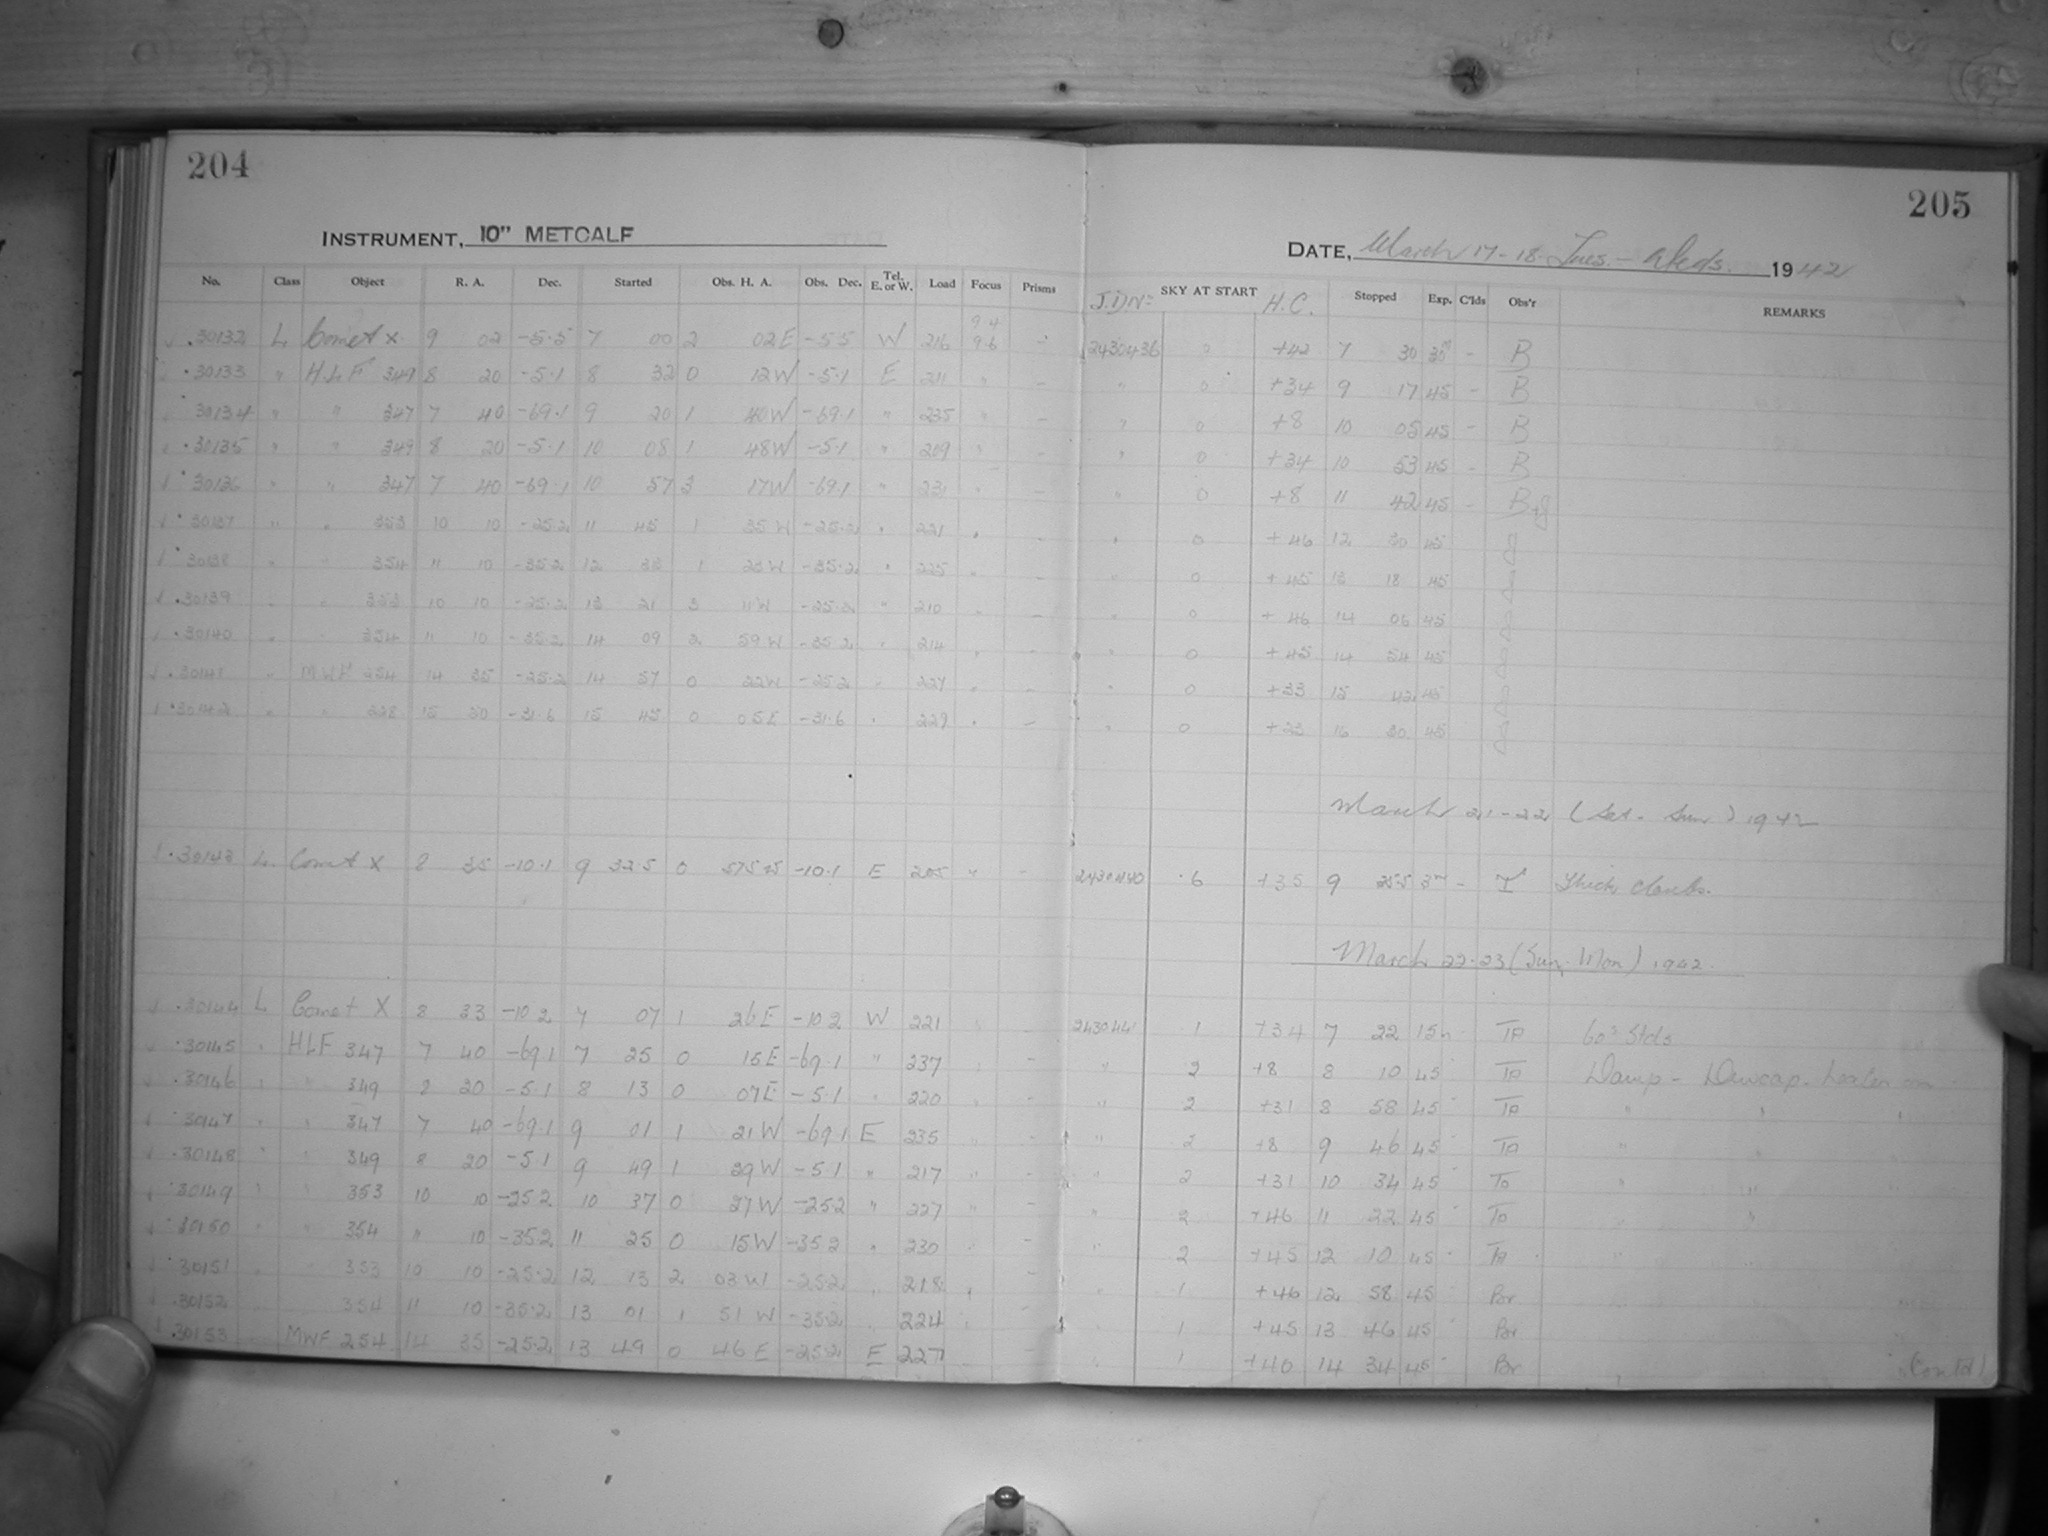 204
205
INSTRUMENT, 10" METCALF
DATE, March 17-18. Tues. - Weds. 1942
No. Class Object R. A. Dec. Started Obs. H. A. Obs. Dec. Tel. E. or W. Load Focus Prisms J.D.N. SKY AT START H.C. Stopped Exp. C'lds Obs'r REMARKS
30132 L Comet X 9 02 -5.5 7 00 2 02E -5.5 W 216 9.4 9.6 - 2430436 0 +42 7 30 30m - B
30133 " HLF 349 8 20 -5.1 8 32 0 12W -5.1 E 211 " - " 0 +34 9 17 45 - B
30134 " " 347 7 40 -69.1 9 20 1 40W -69.1 " 235 " - " 0 +8 10 05 45 - B
30135 " " 349 8 20 -5.1 10 08 1 48W -5.1 " 209 " - " 0 +34 10 53 45 - B
30136 " " 347 7 40 -69.1 10 57 3 17W -69.1 " 231 " - " 0 +8 11 42 45 -
30137 " " 353 10 10 -25.2 11 45 1 35W -25.2 " 221 " - " 0 +46 12 30 45
30138 " " 354 11 10 -35.2 12 33 1 23W -35.2 " 225 " - " 0 +45 13 18 45
30139 " " 353 10 10 -25.2 13 21 3 11W -25.2 " 210 " - " 0 +46 14 06 45
30140 " " 354 11 10 -35.2 14 09 2 59W -35.2 " 214 " - " 0 +45 14 54 45
30141 " MWF 254 14 35 -25.2 14 57 0 22W -25.2 " 227 " - " 0 +33 15 42 45
30142 " " 228 15 50 -31.6 15 45 0 05E -31.6 " 229 " - " 0 +23 16 30 45
March 21-22 (Sat. - Sun) 1942
30143 L Comet X 8 35 -10.1 9 32.5 0 -10.1 E 205 " - 2430440 .6 +35 9 35.5 3m - Thick clouds.
March 22-23 (Sun. Mon) 1942.
30144 L Comet X 8 33 -10.2 7 07 1 26E -10.2 W 221 - 2430441 1 +34 7 22 15m 60s Stds
30145 " HLF 347 7 40 -69.1 7 25 0 15E -69.1 " 237 - " 2 +8 8 10 45 Damp - Dewcap. heater on
30146 " " 349 8 20 -5.1 8 13 0 07E -5.1 " 220 - " 2 +31 8 58 45 " " "
30147 " " 347 7 40 -69.1 9 01 1 21W -69.1 E 235 - " 2 +8 9 46 45 " "
30148 " " 349 8 20 -5.1 9 49 1 29W -5.1 " 217 " - " 2 +31 10 34 45 " "
30149 " " 353 10 10 -25.2 10 37 0 27W -25.2 " 227 " - " 2 +46 11 22 45 " "
30150 " " 354 11 10 -35.2 11 25 0 15W -35.2 " 230 " - " 2 +45 12 10 45
30151 " 353 10 10 -25.2 12 13 2 03W -25.2 " 218 " - " 1 +46 12 58 45 Br
30152 " 354 11 10 -35.2 13 01 1 51W -35.2 " 224 " - " 1 +45 13 46 45 Br
30153 MWF 254 14 35 -25.2 13 49 0 46E -25.2 E 227 " - " 1 +40 14 34 45 Br (Contd)